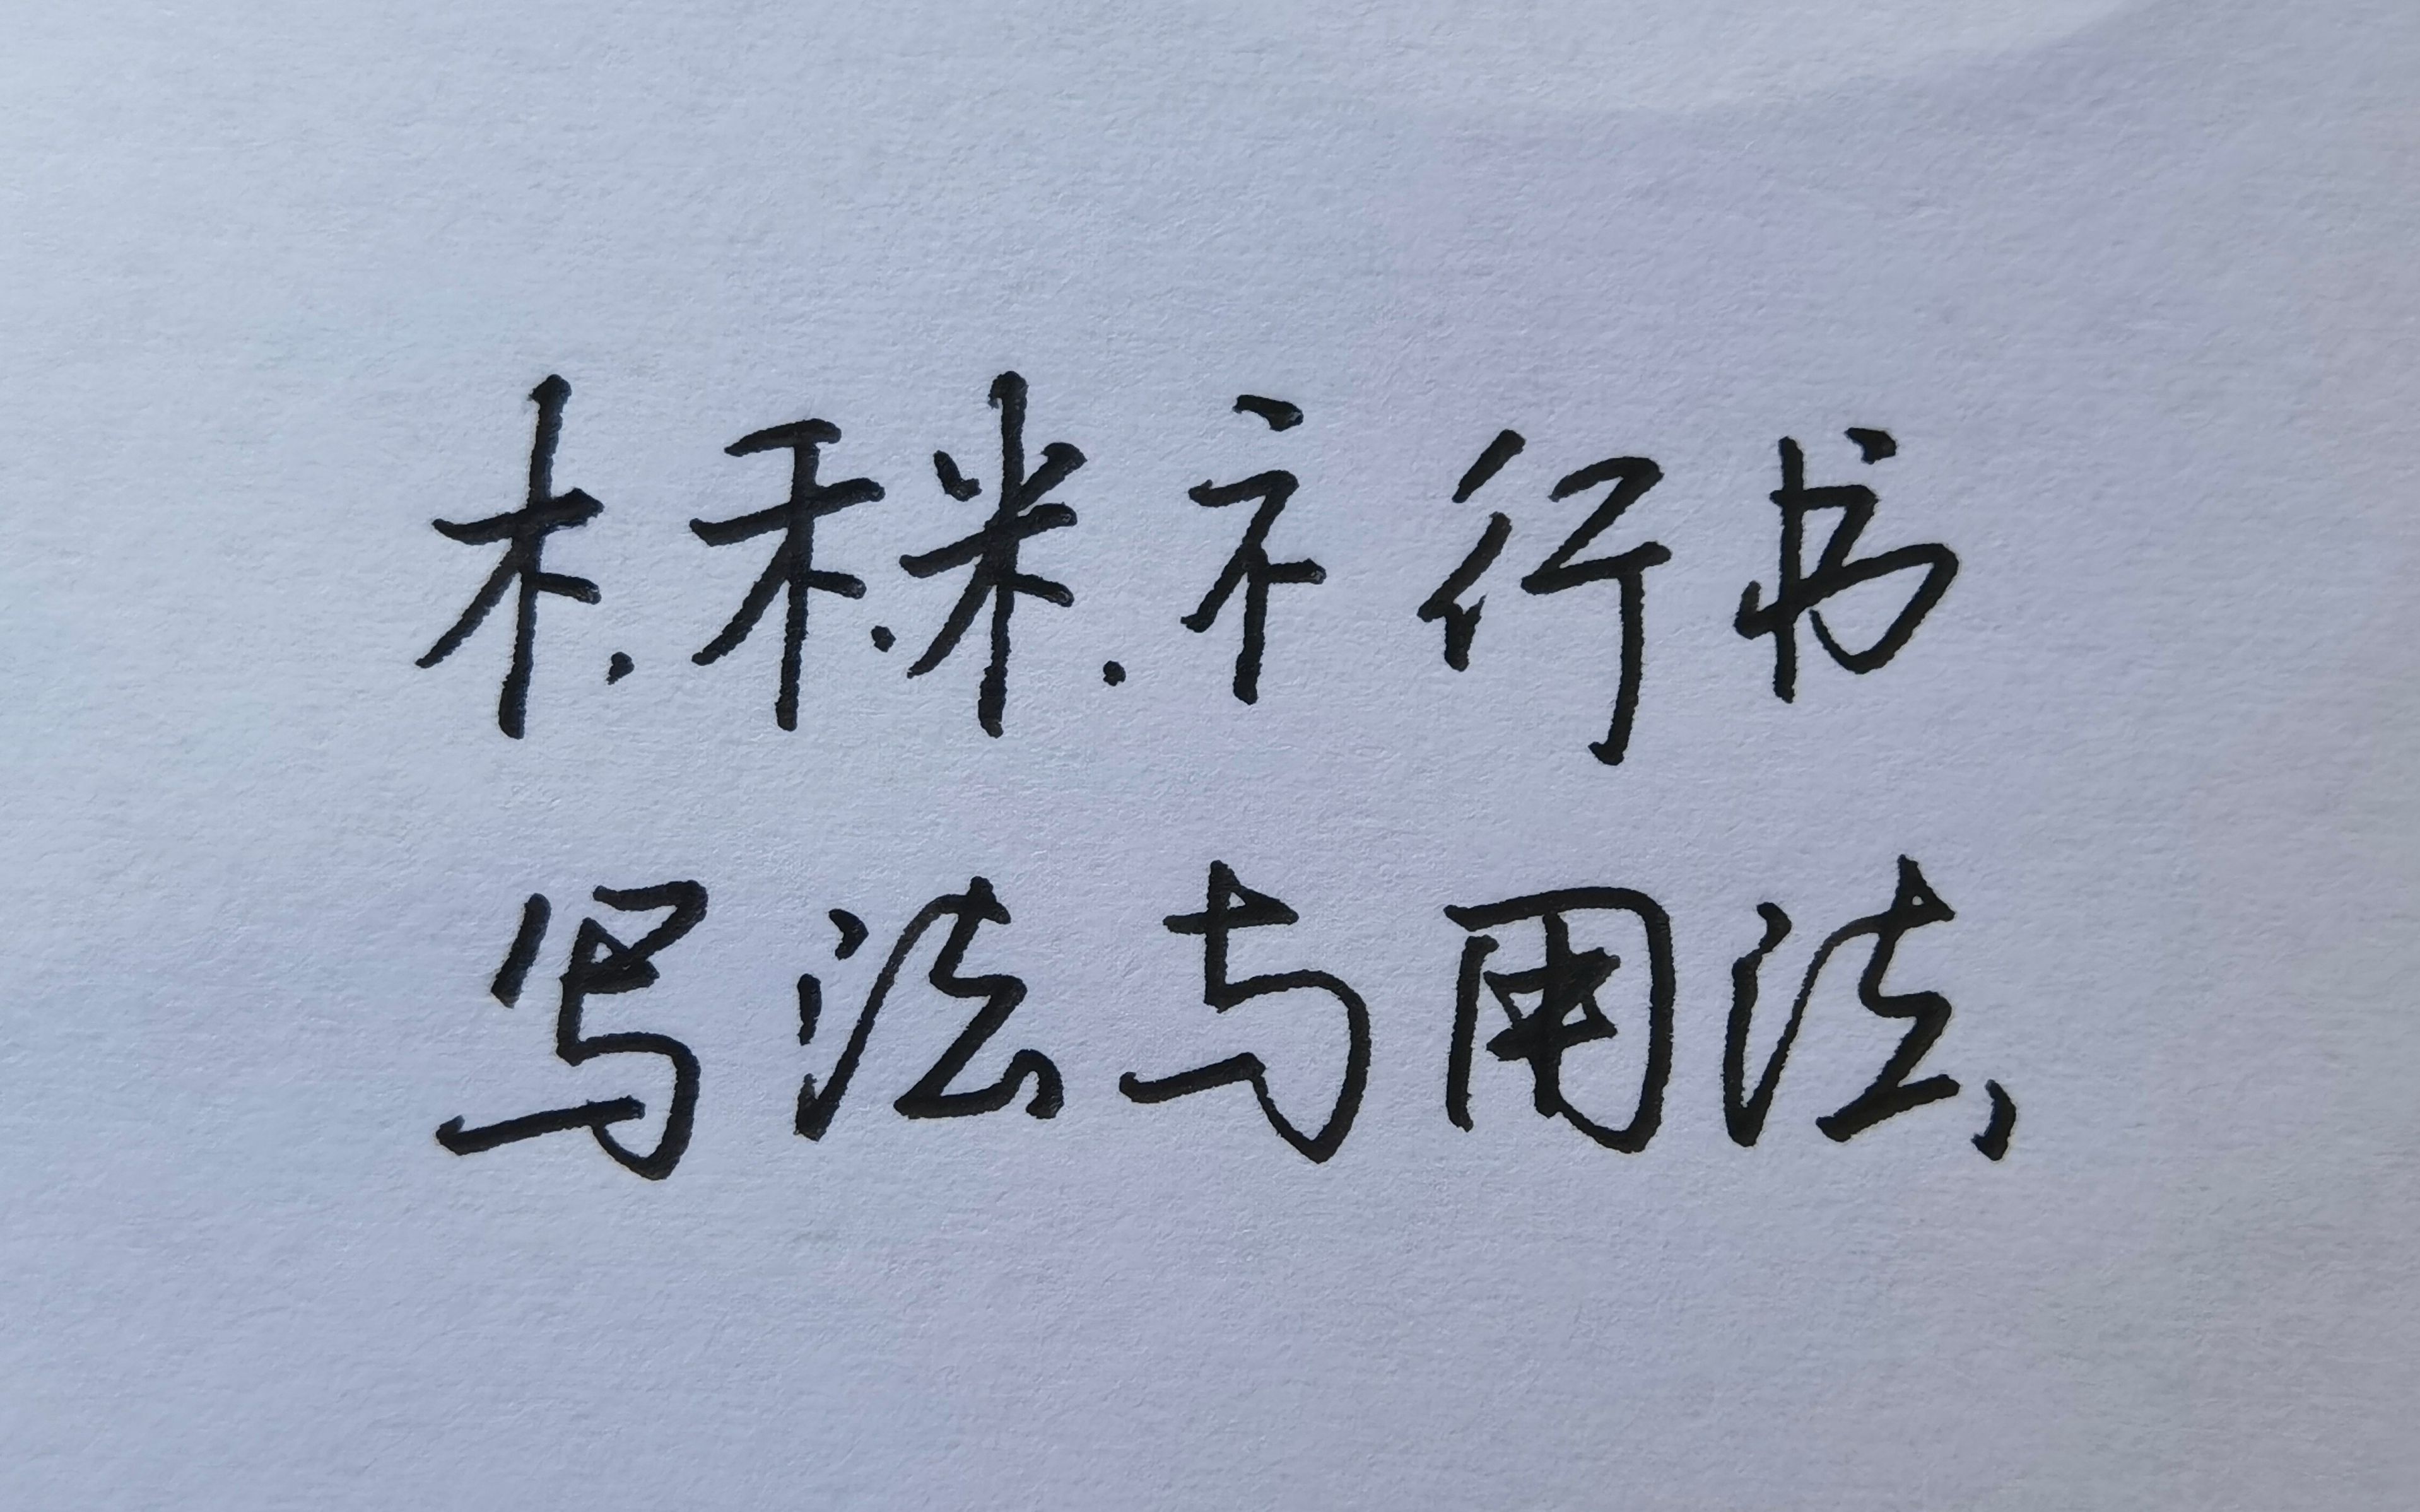 木.禾.米.礻行书
写法与用法